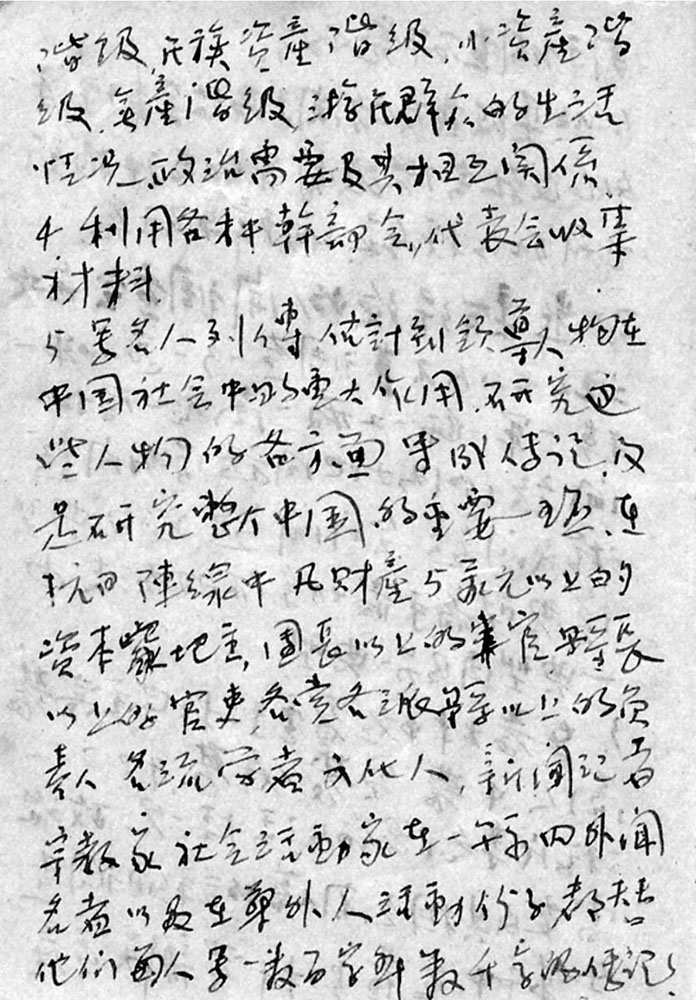 階级,民族資產階级,小資產階
级,無產階级,游民群众的生活
情况,政治需要及其相互関係.
4 利用各种幹部会,代表会收集
材料.
5 写名人列傳 估計到領導人物在
中国社会中的重大作用,研究这
些人物的各方面 写成傳记,乃
是研究整个中国的重要一环,在
抗日陣線中 凡財產5萬元以上的
資本家地主,团長以上的軍官,縣長
以上的官吏,各党各派縣以上的负
责人 名流学者文化人,新闻记者
宗教家 社会活動家 在一縣内外闻
名者 以及在華外人活動份子 都替
他们每人写一数百字到数千字的傳记